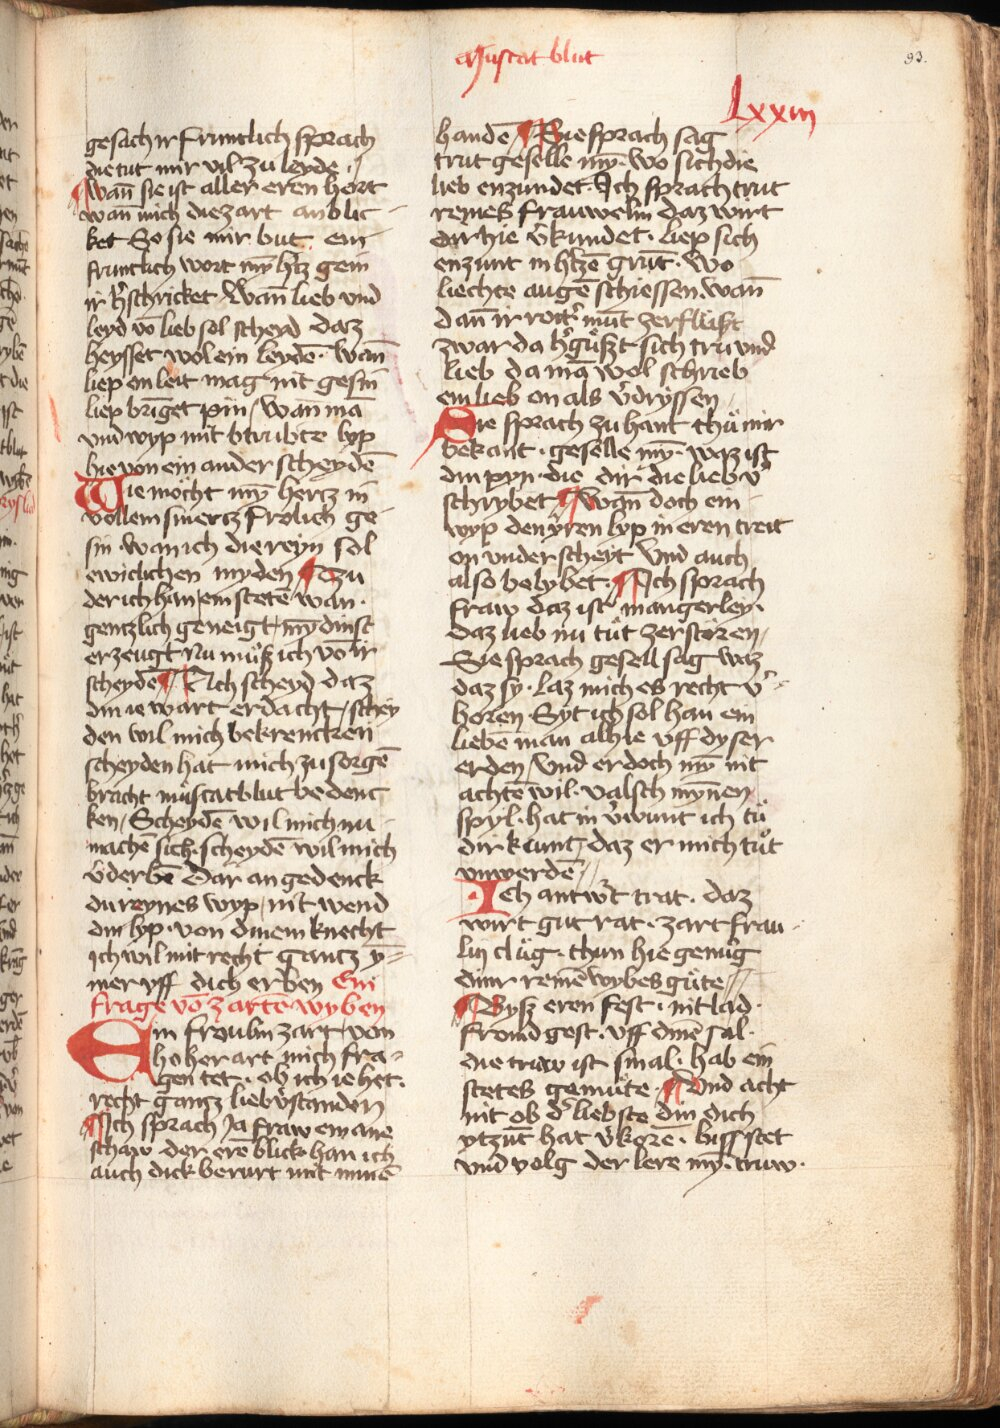 Muscat blut
93.
Lxxiii
gesach ir fruntlich sprach
die tut mir vil zu leyde
¶ Wan̄ sie ist aller eren hort
wan̄ mich die zart anblic
ket So sie mir but ein
fruntlich wort my̅ htz gein
ir v̓schricket Wan̄ lieb vnd
leyd vō lieb sol scheyd daz
heysset wol ein leydē. Wan̄
liep on leit mag nit gesin
liep brīget pin / wan̄ mā
vnd wyp mit btrubte lyp
hie von ein ander scheydē
Wie möcht my̅ hertz in
vollem smertz frolich ge
sin. wan ich die reyn sol
ewiclichen myden ¶ Czu
der ich han ein stetē wan.
gentzlich geneigt my̅ dinst
erzeugt Nu muͦß ich vō ir
scheydē ¶ Ach scheyd daz
din ie wart erdacht / schey
den wil mich bekrencken
scheyden hat mich zu sorgē
bracht muscatblut bedenc
ken / Scheydē wil mich nu
machē sich. scheydē wil mich
v̓derbē Dar an gedenck
du reynes wyp / nit wend
din lyp. von dinem knecht
ich wil mit recht gantz y̅
mer vff dich erben Ein
frage vō zartē wyben
Ein froulin zart von
hoher art mich fra
gen tet. ob ich ie het.
recht gantz lieb v̓standen
¶ Ich sprach Ja fraw ein ane
schaw der erē blick han ich
auch dick berurt mit minē
handē ¶ Sie sprach sag
trut geselle my̅. wo sich die
lieb enzundet. Ich sprach trut
reines frauwelin daz wirt
dir hie v̓kundet. liep sich
enzunt in htzē grūt. Wo
liechte augē schiessen. wan̄
dan̄ ir rott̓ mūt zerflüßt
zwar da h̓güßt sich tru vnd
lieb da mā wol schrieb
ein lieb on als v̓dryssen
Sie sprach zu hant thü mir
bekant. geselle my̅. waz ist
din pyn. die dir die lieb v̓
schrybet ¶ Wan̄ doch ein
wyp den yren lyp in eren treit
on vnderscheyt Vnd auch
also belybet. ¶ Ich sprach
fraw daz ist mangerley.
daz lieb nu tuͦt zerstören
Sie sprach gesell sag waz
daz sy. laz mich es recht v̓
horen Syt ich sol han ein
liebē man alhie vff dyser
erden / Vnd er doch my̅ nit
achtē wil. valsch my̅nen
spyl. hat in v̓wunt ich tuͦ
dir kunt / daz er mich tuͦt
vnwerdē
Ich antw̓t trat. daz
wirt gut rat. zart frau
lin cluͦg. thun hie genuͦg
diner reinē wybes guͤte
¶ Byß eren fest. nit lad.
fromd gest. vff dinē sal.
die truw ist smal. hab ein
stetes gemuͤte. ¶ Vnd acht
nit ob d̓ liebste din dich
ytzut hat v̓korē. biss stet
vnd volg der lere my̅. truw.